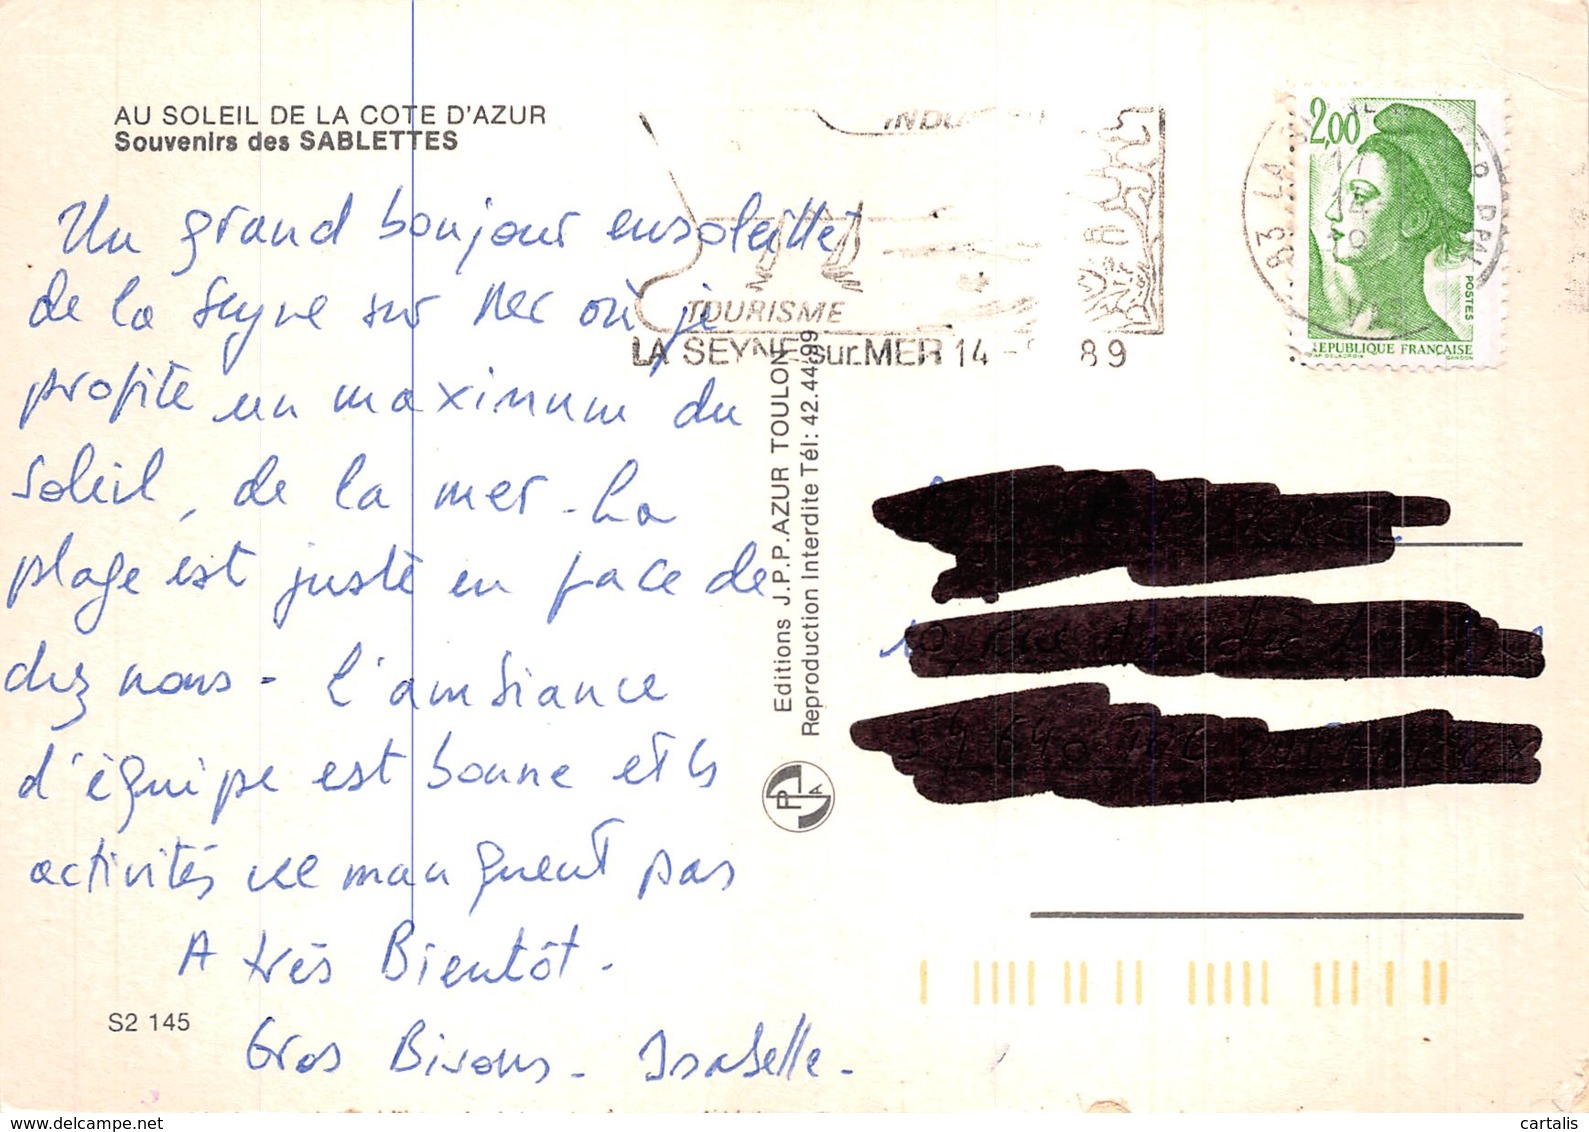 AU SOLEIL DE LA COTE D'AZUR
Souvenirs des SABLETTES
Un grand bonjour ensoleillet
de la Seyne sur Mer où je
profite un maximum du
soleil, de la mer - La
plage est juste en face de
chez nous - l'ambiance
d'équipe est bonne et ls
activités ne manquent pas
A très Bientôt -
Gros Bisous - Isabelle -
S2 145
TOURISME
LA SEYNE sur MER 14 - 89
Editions J.P.P.AZUR TOULON
Reproduction Interdite Tél: 42.44.99
PA
83 LA
VAR
2,00
POSTES
REPUBLIQUE FRANÇAISE
AP. DELACROIX
GANDON
www.delcampe.net
cartalis